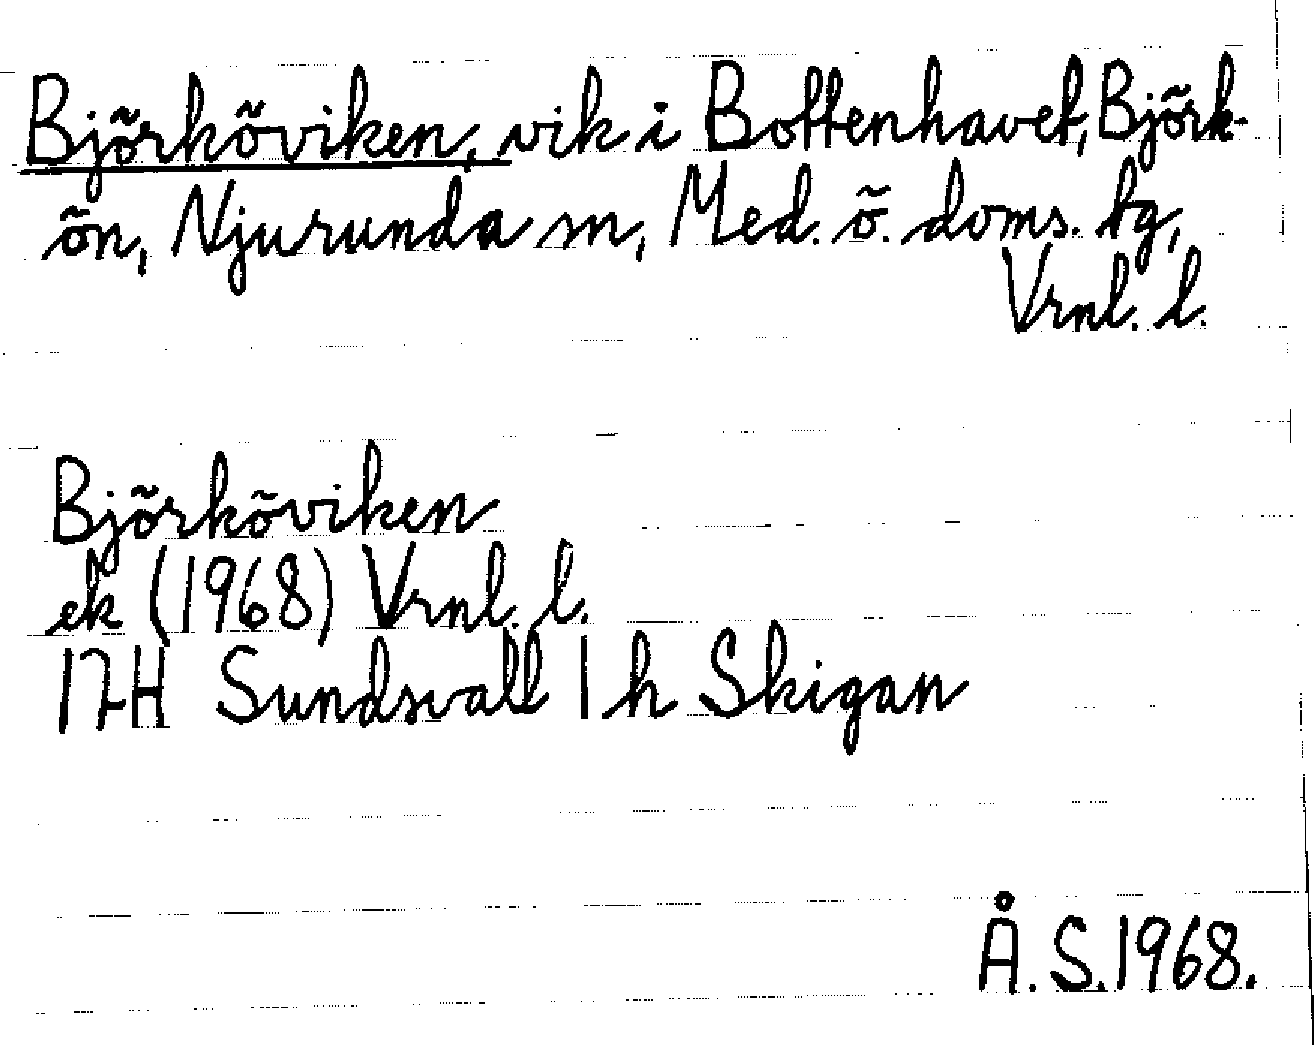 Björköviken, vik i Bottenhavet, Björk-
ön, Njurunda sn, Med. ö. doms. tg,
Vrnl. l.
Björköviken
ek (1968) Vrnl. l.
17H Sundsvall 1 h Skigan
Å. S. 1968.